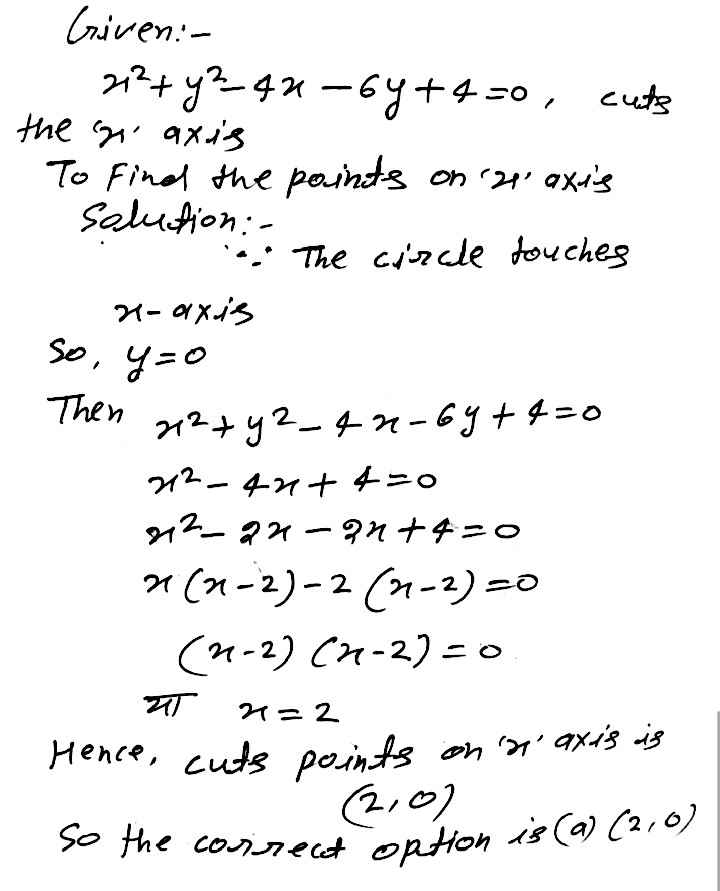 Given:-
x²+ y²-4x -6y+4=0, cuts
the 'x' axis
To Find the points on 'x' axis
Solution:-
∵ The circle touches
x-axis
So, y=0
Then x²+y²-4x-6y+4=0
x²-4x+4=0
x²-2x-2x+4=0
x(x-2)-2(x-2)=0
(x-2)(x-2)=0
या x=2
Hence, cuts points on 'x' axis is
(2,0)
So the correct option is (a) (2,0)